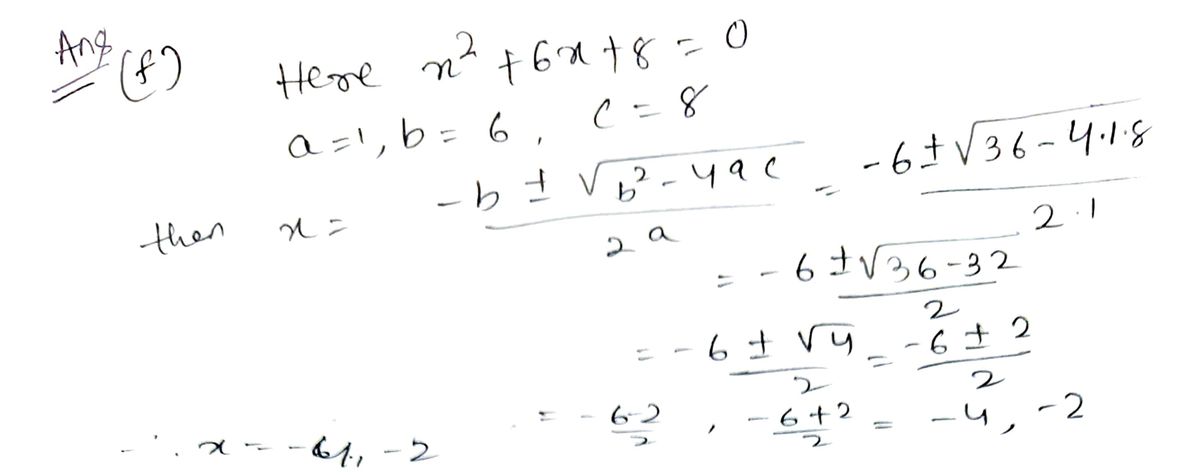 Ans (f) Here x² + 6x + 8 = 0
a = 1, b = 6, c = 8
then x = (-b ± √(b² - 4ac))/(2a) = (-6 ± √(36 - 4·1·8))/(2·1)
= (-6 ± √(36 - 32))/2
= (-6 ± √4)/2 = (-6 ± 2)/2
= (-6-2)/2, (-6+2)/2 = -4, -2
∴ x = -4, -2